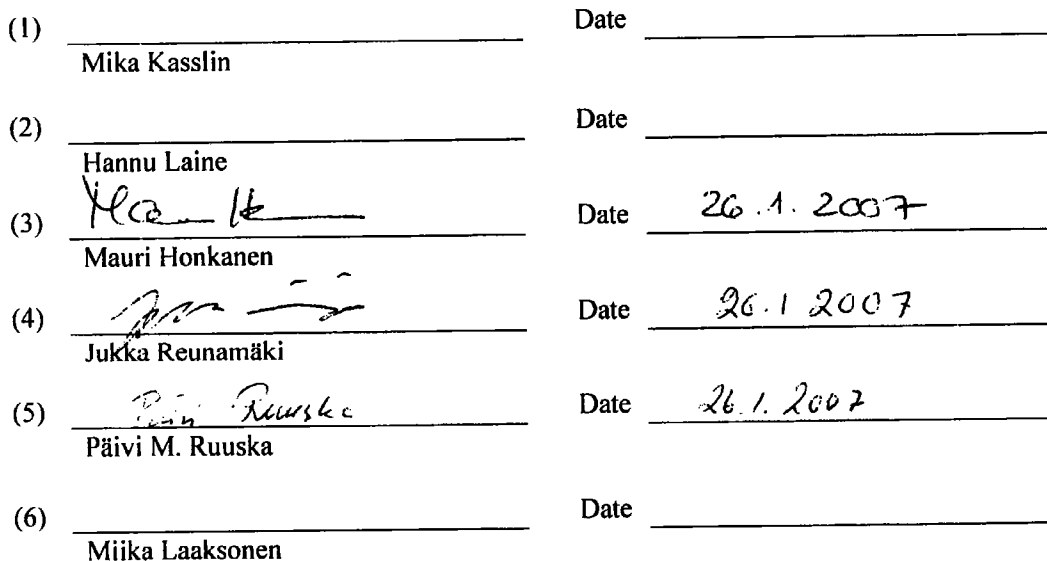 (1) Date
Mika Kasslin
(2) Date
Hannu Laine
(3) Date 26.1.2007
Mauri Honkanen
(4) Date 26.1 2007
Jukka Reunamäki
(5) Ruuska Date 26.1.2007
Päivi M. Ruuska
(6) Date
Miika Laaksonen